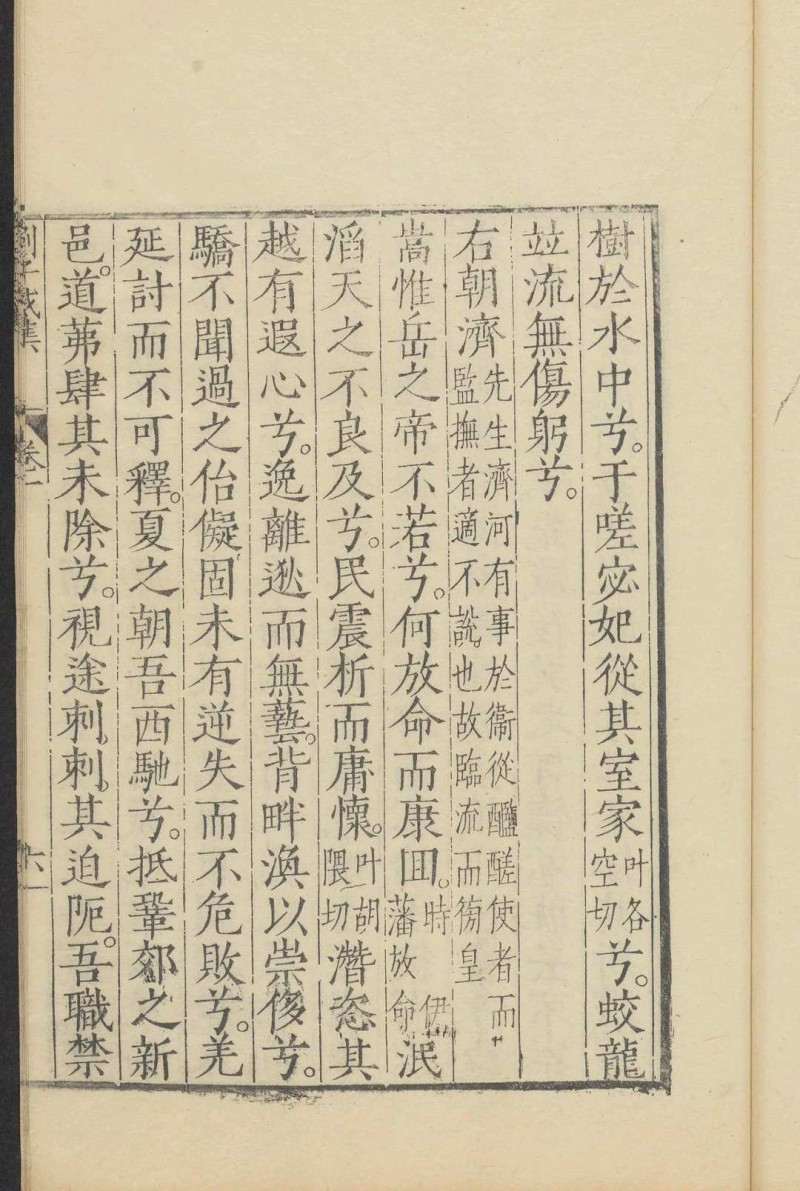 樹於水中兮。于嗟宓妃從其室家叶各空切兮。蛟龍
竝流無傷躬兮。
右朝濟先生濟河有事於衞從醞醝使者而監撫者適不說。也故臨流而徬皇
嵩惟岳之帝不若兮。何放命而康回。時伊藩放命泯
滔天之不良及兮。民震析而庸懷。叶胡隈切潛恣其
越有遐心兮。逸離逖而無藝。背畔渙以崇侈兮。
驕不聞過之佁儗固未有逆失而不危敗兮。羌
延討而不可釋。夏之朝吾西馳兮。抵鞏郊之新
邑。道茀肆其未除兮。視途刺。刺。其迫阨。吾職禁
劉子威集 卷一 六